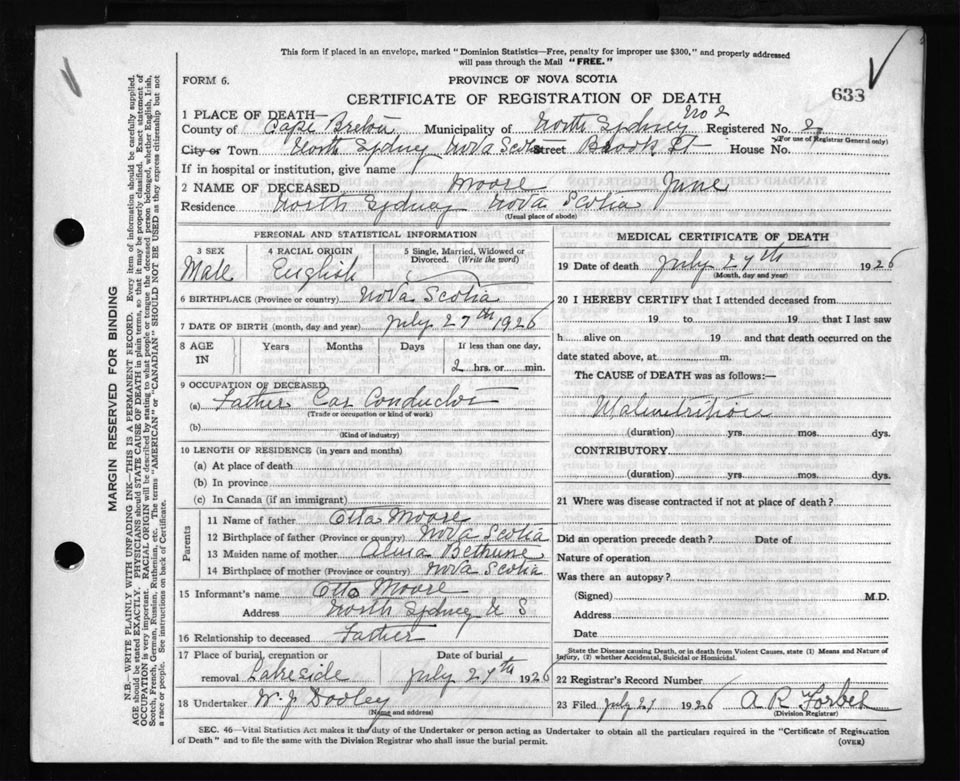 This form if placed in an envelope, marked "Dominion Statistics—Free, penalty for improper use $300," and properly addressed
will pass through the Mail "FREE."
FORM 6.
PROVINCE OF NOVA SCOTIA
CERTIFICATE OF REGISTRATION OF DEATH
633
1 PLACE OF DEATH—
County of Cape Breton Municipality of North Sydney No 2 Registered No. 27
(For use of Registrar General only)
City or Town North Sydney Nova Scotia Street Brook St House No.
If in hospital or institution, give name
2 NAME OF DECEASED Moore June
Residence North Sydney Nova Scotia
(Usual place of abode)
PERSONAL AND STATISTICAL INFORMATION
3 SEX 4 RACIAL ORIGIN 5 Single, Married, Widowed or
Divorced. (Write the word)
Male English
6 BIRTHPLACE (Province or country) Nova Scotia
7 DATE OF BIRTH (month, day and year) July 27th 1926
8 AGE IN Years Months Days If less than one day,
2 hrs. or min.
9 OCCUPATION OF DECEASED
(a) Father Car Conductor
(Trade or occupation or kind of work)
(b)
(Kind of industry)
10 LENGTH OF RESIDENCE (in years and months)
(a) At place of death
(b) In province
(c) In Canada (if an immigrant)
Parents
11 Name of father Otto Moore
12 Birthplace of father (Province or country) Nova Scotia
13 Maiden name of mother Bethune
14 Birthplace of mother (Province or country) Nova Scotia
15 Informant's name Otto Moore
Address North Sydney N S
16 Relationship to deceased Father
17 Place of burial, cremation or Date of burial
removal Lakeside July 27th 1926
18 Undertaker W. J. Dooley
(Name and address)
MEDICAL CERTIFICATE OF DEATH
19 Date of death July 27th 1926
(Month, day and year)
20 I HEREBY CERTIFY that I attended deceased from
19 to 19 that I last saw
h alive on 19 and that death occurred on the
date stated above, at m.
The CAUSE of DEATH was as follows:—
Malnutrition
(duration) yrs. mos. dys.
CONTRIBUTORY
(duration) yrs. mos. dys.
21 Where was disease contracted if not at place of death?
Did an operation precede death? Date of
Nature of operation
Was there an autopsy?
(Signed) M.D.
Address
Date
State the Disease causing Death, or in death from Violent Causes, state (1) Means and Nature of
Injury, (2) whether Accidental, Suicidal or Homicidal.
22 Registrar's Record Number
23 Filed July 27 1926 A R Forbes
(Division Registrar)
SEC. 46—Vital Statistics Act makes it the duty of the Undertaker or person acting as Undertaker to obtain all the particulars required in the "Certificate of Registration
of Death" and to file the same with the Division Registrar who shall issue the burial permit.
(OVER)
MARGIN RESERVED FOR BINDING
N.B.—WRITE PLAINLY WITH UNFADING INK—THIS IS A PERMANENT RECORD. Every item of information should be carefully supplied.
AGE should be stated EXACTLY. PHYSICIANS should STATE CAUSE OF DEATH in plain terms, so that it may be properly classified. Exact statement of
OCCUPATION is very important. RACIAL ORIGIN will be described by stating to what people or tongue the deceased person belonged, whether English, Irish,
Scotch, French, German, Russian, Ruthenian, etc. The terms "AMERICAN" or "CANADIAN" SHOULD NOT BE USED as they express citizenship but not
a race or people. See instructions on back of Certificate.